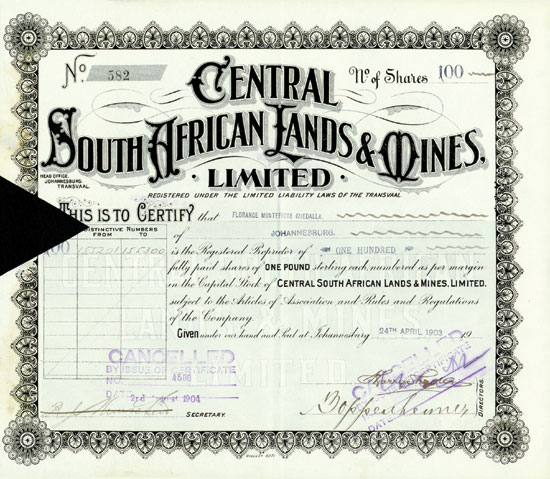 No. 382
No of Shares 100
CENTRAL
SOUTH AFRICAN LANDS & MINES,
· LIMITED ·
HEAD OFFICE.
JOHANNESBURG.
TRANSVAAL.
REGISTERED UNDER THE LIMITED LIABILITY LAWS OF THE TRANSVAAL
THIS IS TO CERTIFY that FLORANCE MONTEFIORE GUEDALLA,
of JOHANNESBURG.
DISTINCTIVE NUMBERS
FROM TO
100 155201 155300
is the Registered Proprietor of ONE HUNDRED
fully paid shares of ONE POUND sterling each, numbered as per margin
in the Capital Stock of CENTRAL SOUTH AFRICAN LANDS & MINES, LIMITED.
subject to the Articles of Association and Rules and Regulations
of the Company.
Given under our hand and Seal at Johannesburg 24TH APRIL 1903 19
CANCELLED
BY ISSUE OF CERTIFICATE
NO. 4586
DATE 2nd August 1904
SECRETARY.
DIRECTORS.